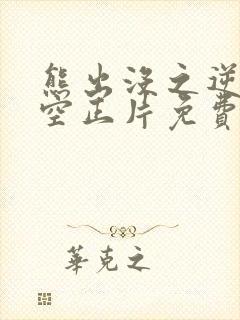 熊出没之逆
空正片免費
華克之